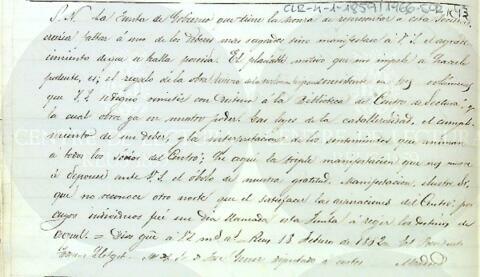 CLR-4-1-1859/1966-CCR 1C/13
S. N. La Junta de Gobierno que tiene la honra de representar a esta Sociedad,
creeria faltar á uno de los deberes mas sagrados sino manifestase a V. S. el agrade-
cimiento de que se halla poseida. El plausible motivo que nos impele á hacerle
patente, es; el regalo de la obra consistente en tres volúmenes
que V. S. se dignó remitir con destino á la Biblioteca del Centro de Lectura y
la cual obra ya en nuestro poder. Las leyes de la caballerosidad, el cumpli-
miento de un deber, y la interpretacion de los sentimientos que animan
á todos los Sócios del Centro; he aqui la triple manifestacion que nos mueve
á deponer ante V. S. el óbolo de nuestra gratitud. Manifestacion, ilustre Sr.
que no reconoce otro norte que el satisfacer las aspiraciones del Centro; por
cuyos individuos fué un dia llamada esta Junta á regir los destinos de
Dios gue á V. S. ms. as. Reus 13 Febrero de 1862 El Presidente
M. I. S. D. José Gener diputado a cortes Madrid